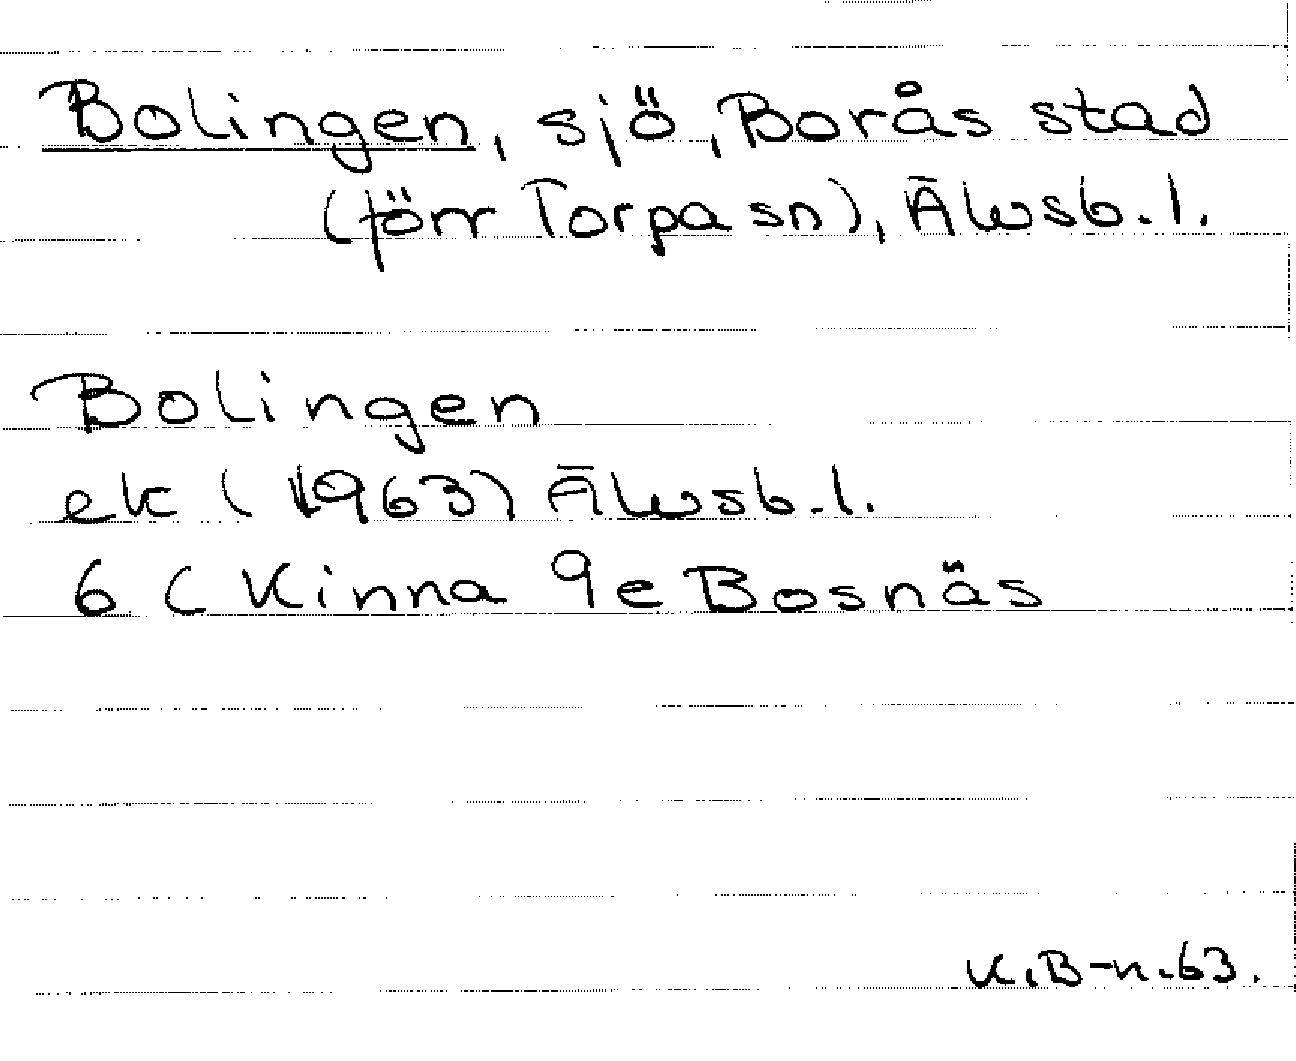 Bolingen, sjö, Borås stad
(förr Torpa sn), Älvsb.l.
Bolingen
ek (1963) Älvsb.l.
6 C Kinna 9e Bosnäs
K.B-n.63.